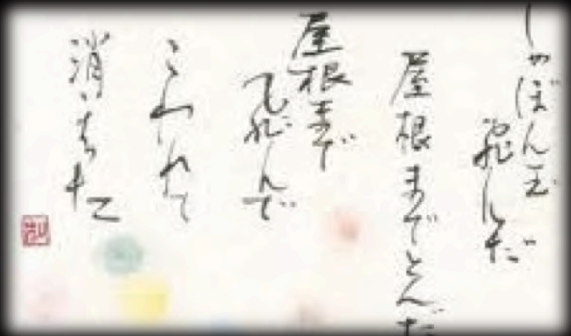 しゃぼん玉
飛んだ
屋根までとんだ
屋根まで
飛んで
こわれて
消えた